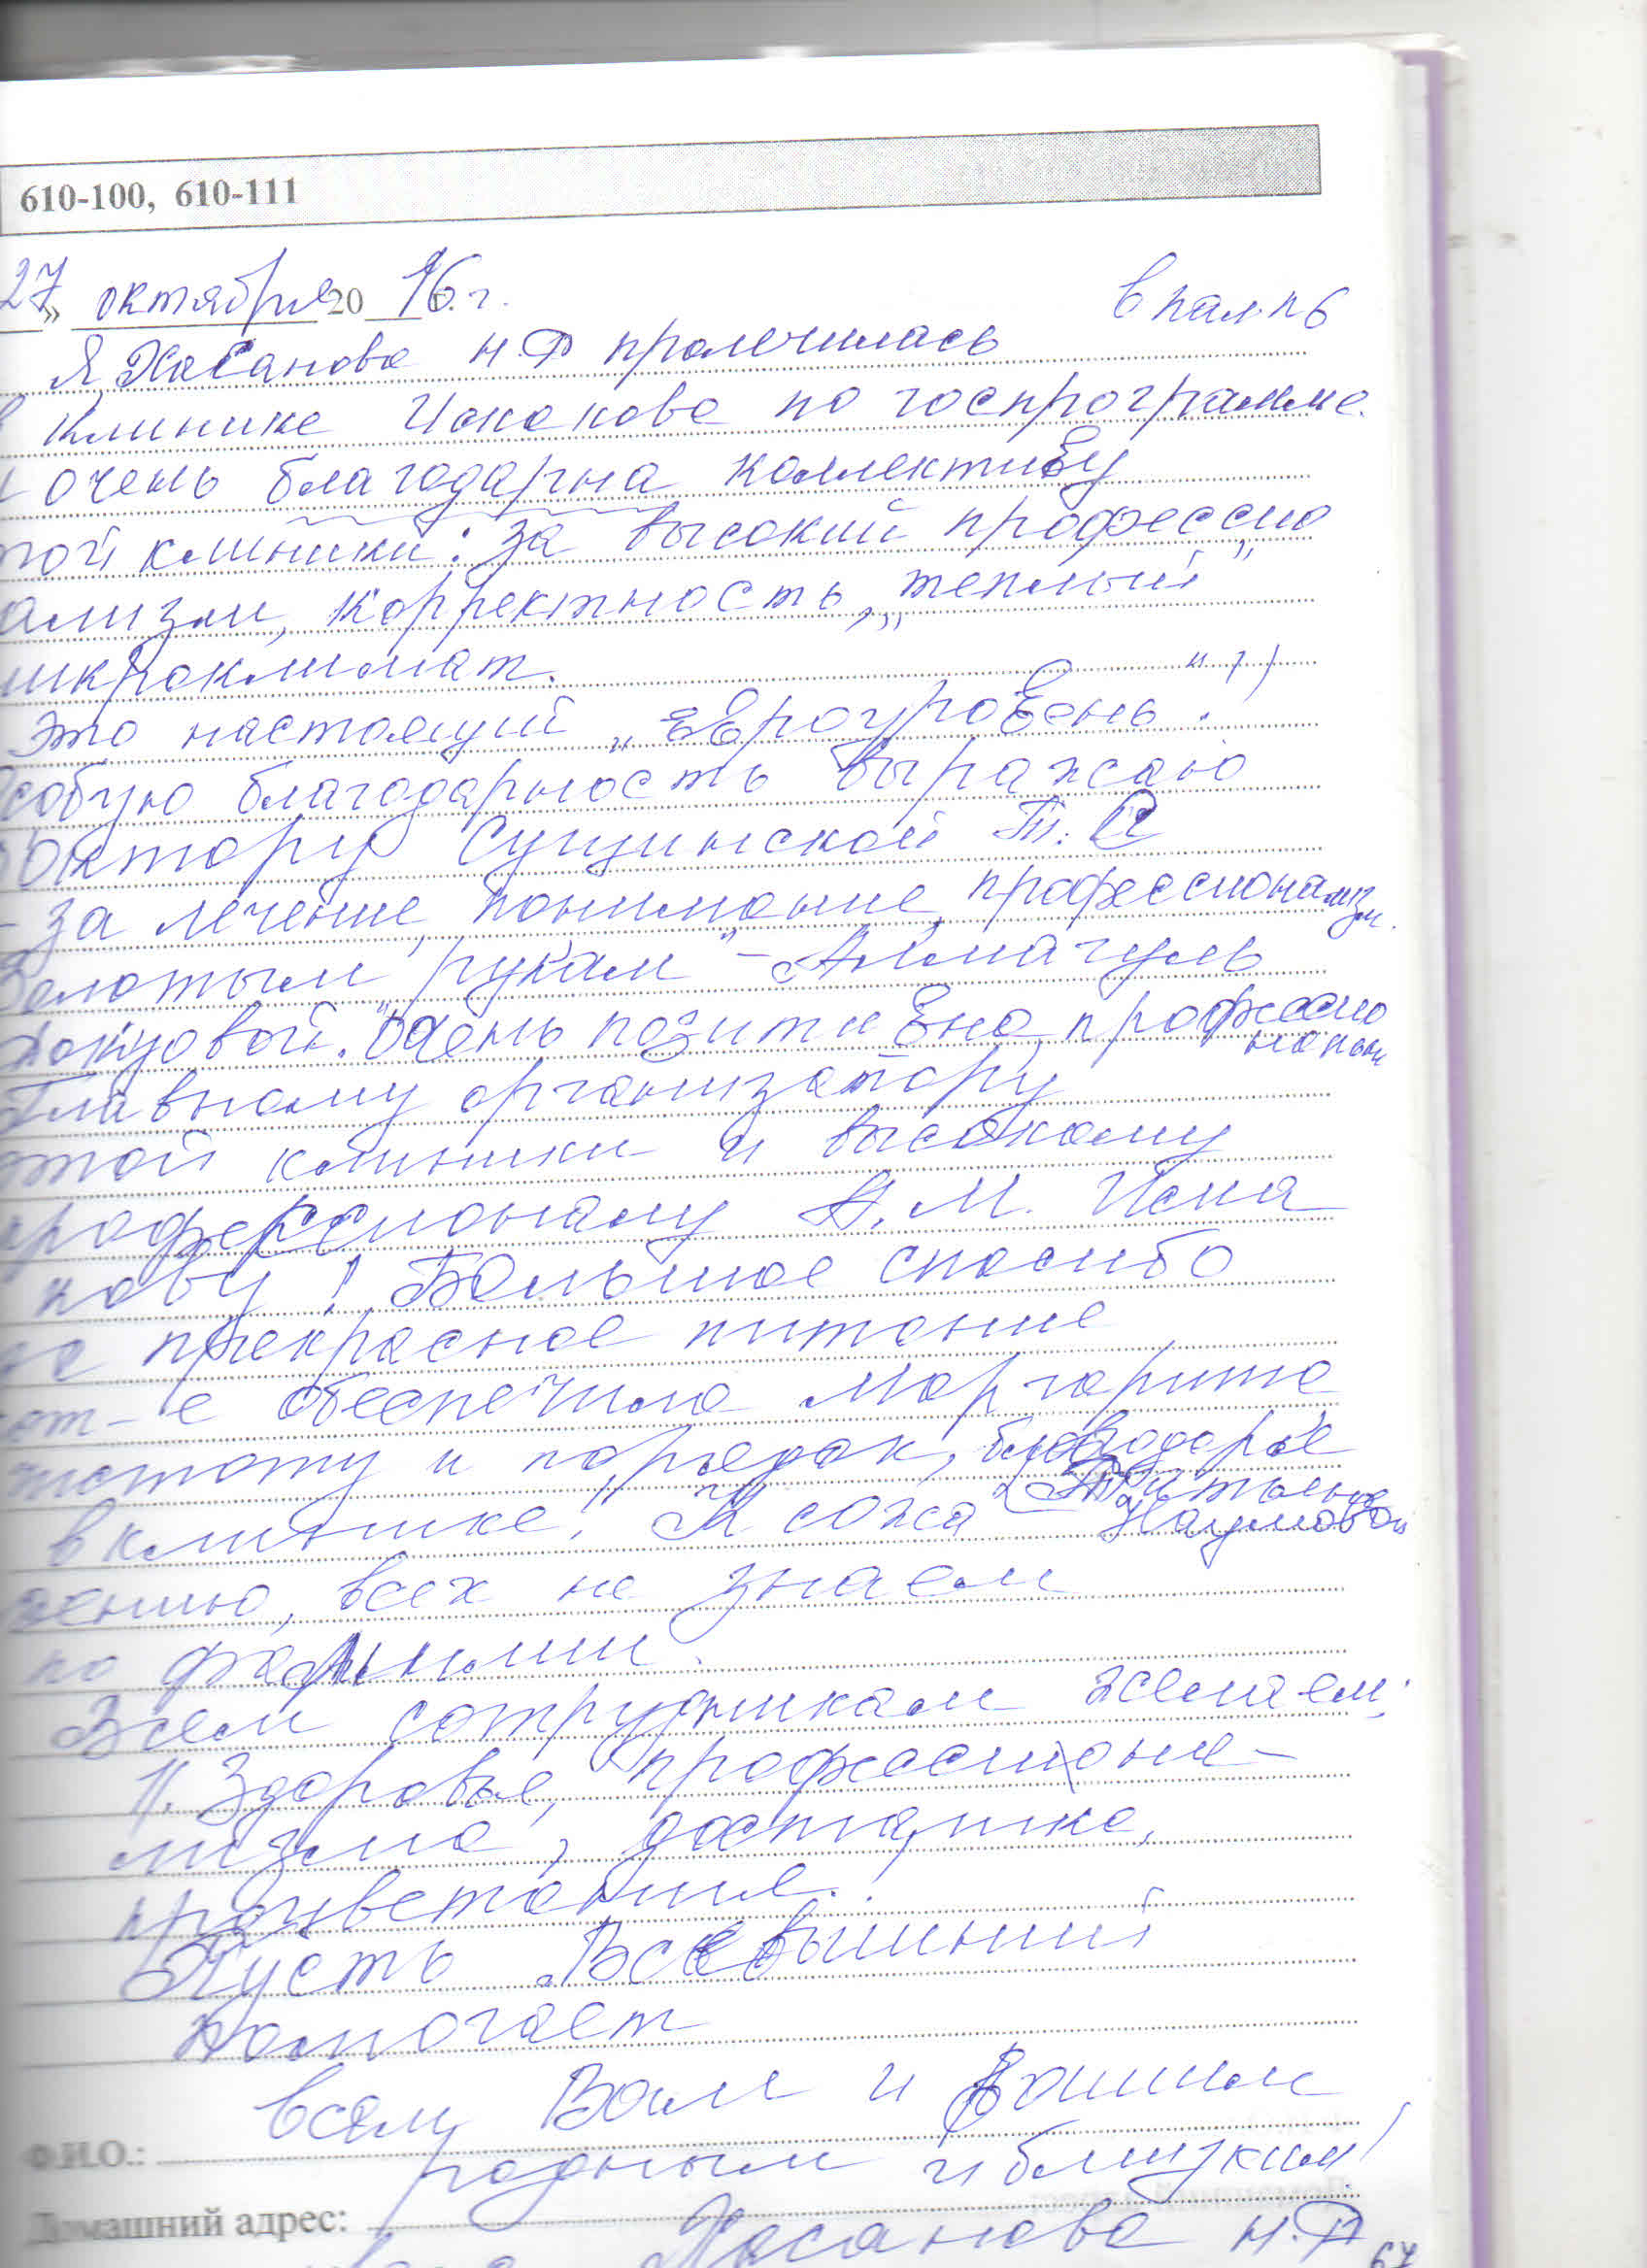 610-100, 610-111
27 » октября 2016 г.
в пал. №6
Я, Хасанова Н.Ф пролечилась
в клинике Искакова по госпрограмме.
очень благодарна коллективу
той клиники: за высокий профессио
ализм, корректность, „теплый"
икроклимат.
Это настоящий „Евроуровень".
собую благодарность выражаю
октору Сущинской Т.
- за лечение, понимание, профессионализм.
Золотым рукам" - Алмагуль
"Очень позитивно, профессио
нально
Главному организатору
этой клиники и высокому
профессионалу А.М. Иска
кову! Большое спасибо
за прекрасное питание
от-е обеспечила Маргарита
чистоту и порядок, благодаря
в клинике! К сожа
Татьяне
Наумовой
лению, всех не знаем
по фамилии.
Всем сотрудникам желаем:
1. Здоровье, профессиона-
лизма, достатка,
процветания.
Пусть Всевышний
помогает
всем Вам и Вашим
родным и близким!
Ф.И.О.:
Домашний адрес:
Хасанова Н.Ф
67